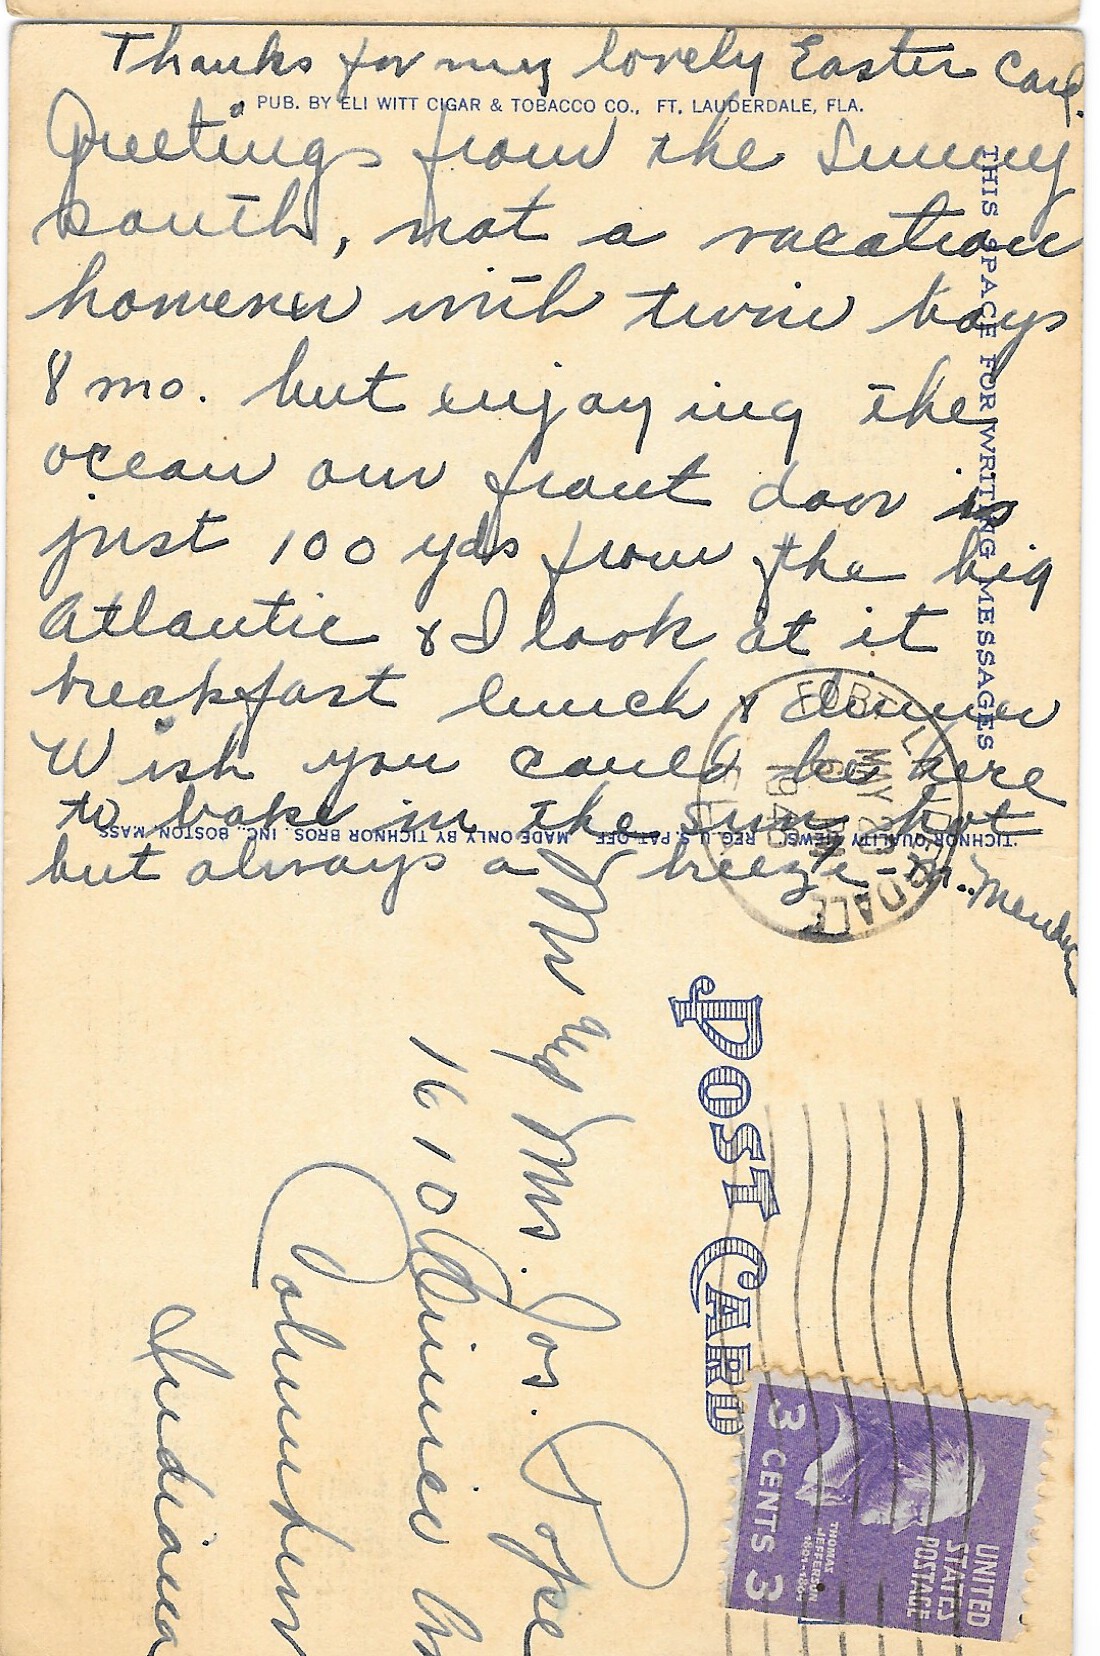 Thanks for my lovely Easter Card.
PUB. BY ELI WITT CIGAR & TOBACCO CO., FT. LAUDERDALE, FLA.
Greetings from the Sunny
south, not a vacation
however with twin boys
8 mo. but enjoying the
ocean our front door is
just 100 yds from the big
Atlantic & I look at it
breakfast lunch & dinner
Wish you could be here
to bake in the sun, hot
but always a breeze -
THIS SPACE FOR WRITING MESSAGES
"TICHNOR QUALITY VIEWS," REG. U. S. PAT. OFF. MADE ONLY BY TICHNOR BROS. INC., BOSTON, MASS.
FORT LAUDERDALE
MAY 20
PM
FLA.
POST CARD
UNITED
STATES
POSTAGE
THOMAS
JEFFERSON
1801-1809
3 CENTS 3
Mr and Mrs. Jos. Pope
1610
Columbus
Indiana